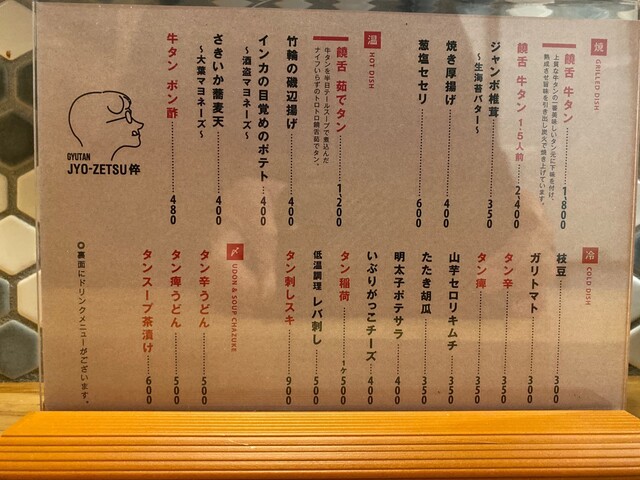 焼 GRILLED DISH
饒舌 牛タン 1,800
上質な牛タンの一番美味しいタン元に下味を付け、
熟成させ旨味を引き出し炭火で焼き上げています。
饒舌 牛タン 1.5人前 2,400
ジャンボ椎茸 350
〜生海苔バター〜
焼き厚揚げ 400
葱塩セセリ 600
温 HOT DISH
饒舌 茹でタン 1,200
牛タンを半日テールスープで煮込んだ
ナイフいらずのトロトロ饒舌茹でタン。
竹輪の磯辺揚げ 400
インカの目覚めのポテト 400
〜酒盗マヨネーズ〜
さきいか蕎麦天 400
〜大葉マヨネーズ〜
牛タン ポン酢 480
冷 COLD DISH
枝豆 300
ガリトマト 300
タン辛 350
タン痺 350
山芋セロリキムチ 350
たたき胡瓜 350
明太子ポテサラ 400
いぶりがっこチーズ 400
タン稲荷 1ケ500
低温調理 レバ刺し 500
タン刺しスキ 900
〆 UDON & SOUP CHAZUKE
タン辛うどん 500
タン痺うどん 500
タンスープ茶漬け 600
GYUTAN
JYO-ZETSU 倅
○裏面にドリンクメニューがございます。